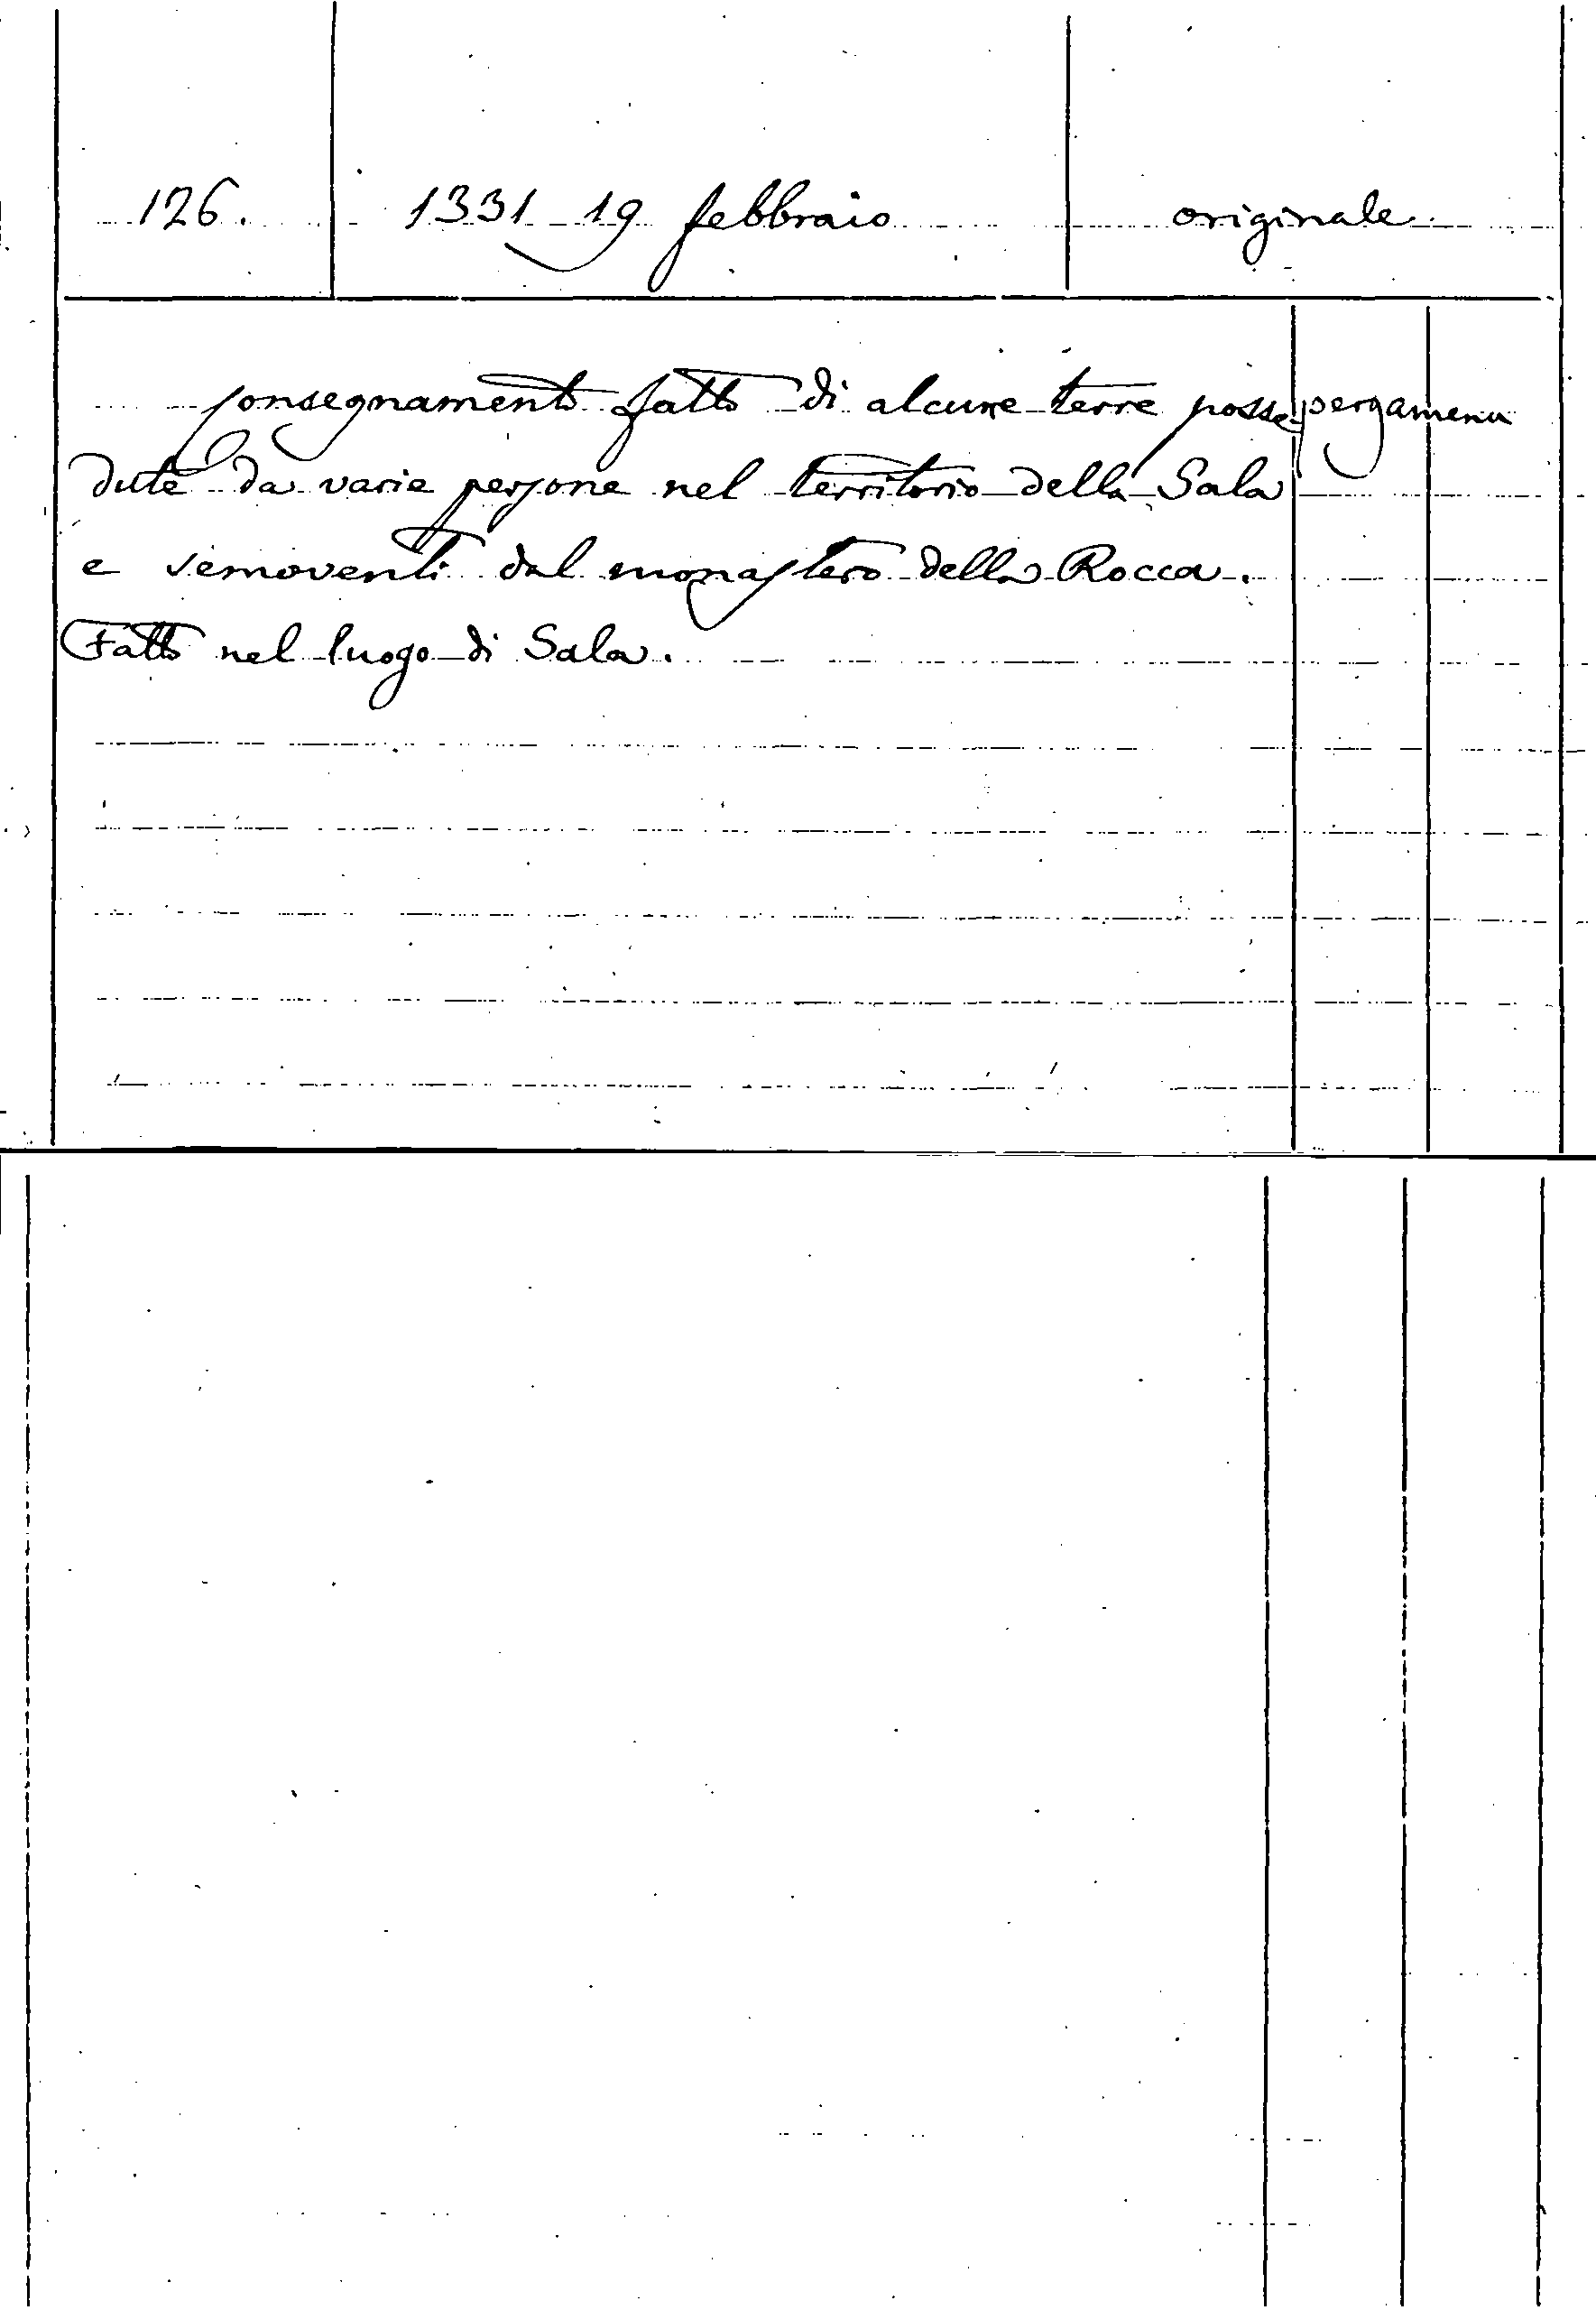 126. 1331 19 febbraio originale
Consegnamento fatto di alcune terre posse pergamena
dute da varie persone nel territorio della Sala
e semoventi dal monastero della Rocca.
Fatto nel luogo di Sala.